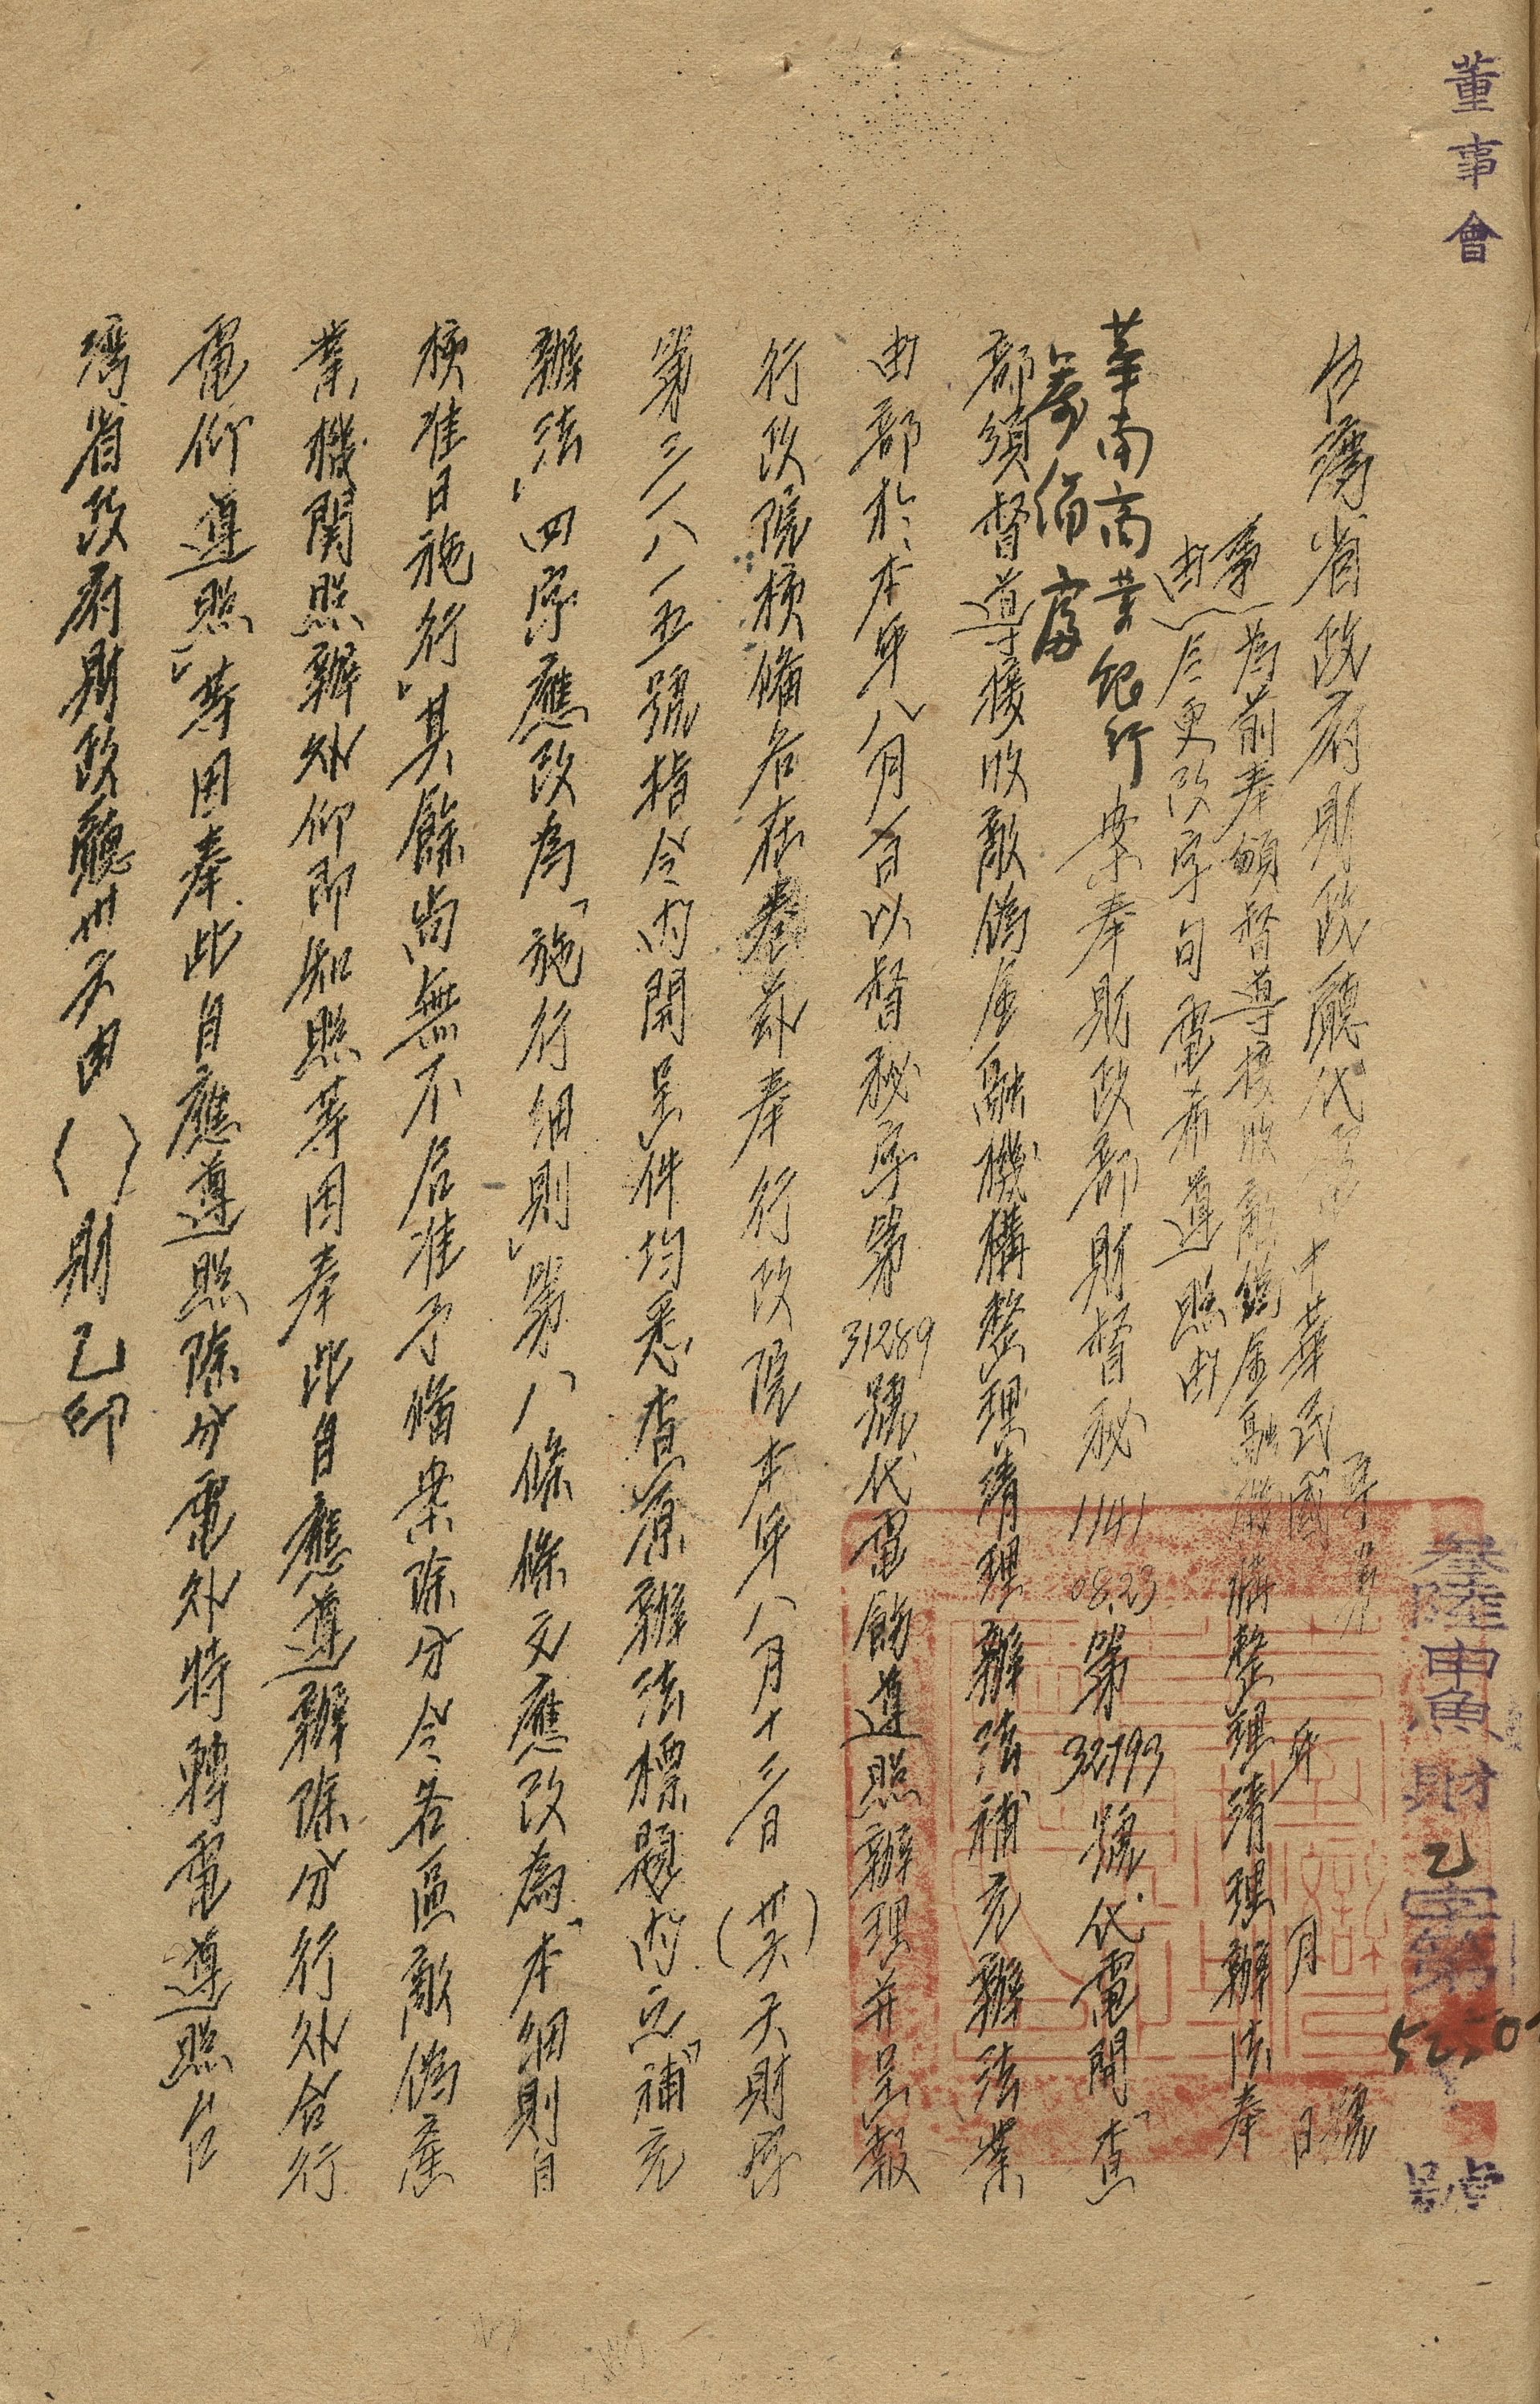 董事會
叁陸申魚財乙字第
號
台灣省政府財政廳代電 中華民國 年 月 日
字第 號
事 為前奉頒督導接收敵偽金融機構整理清理辦法奉
由 令更改字句電希遵照由
華南商業銀行
籌備處
案奉財政部財督秘1141 08.23第32793號代電開「查
部頒督導接收敵偽金融機構整理清理辦法補充辦法業
由部於本年八月一日以督秘字第31289號代電飭遵照辦理并呈報
行政院核備各在卷茲奉行政院本年八月十三日(卅六)天財字
第三一八一五號指令內開呈件均悉查原辦法標題內之「補充
辦法」四字應改為「施行細則」第八條條文應改為「本細則自
核准日施行」其餘尚無不合准予備案除分令各區敵偽產
業機關照辦外仰即知照等因奉此自應遵辦除分行外合行
電仰遵照」等因奉此自應遵照除分電外特轉電遵照台
灣省政府財政廳卅六申( )財乙印